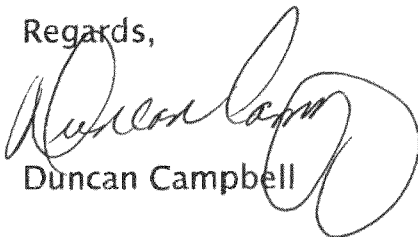 Regards,
Duncan Camp
Duncan Campbell